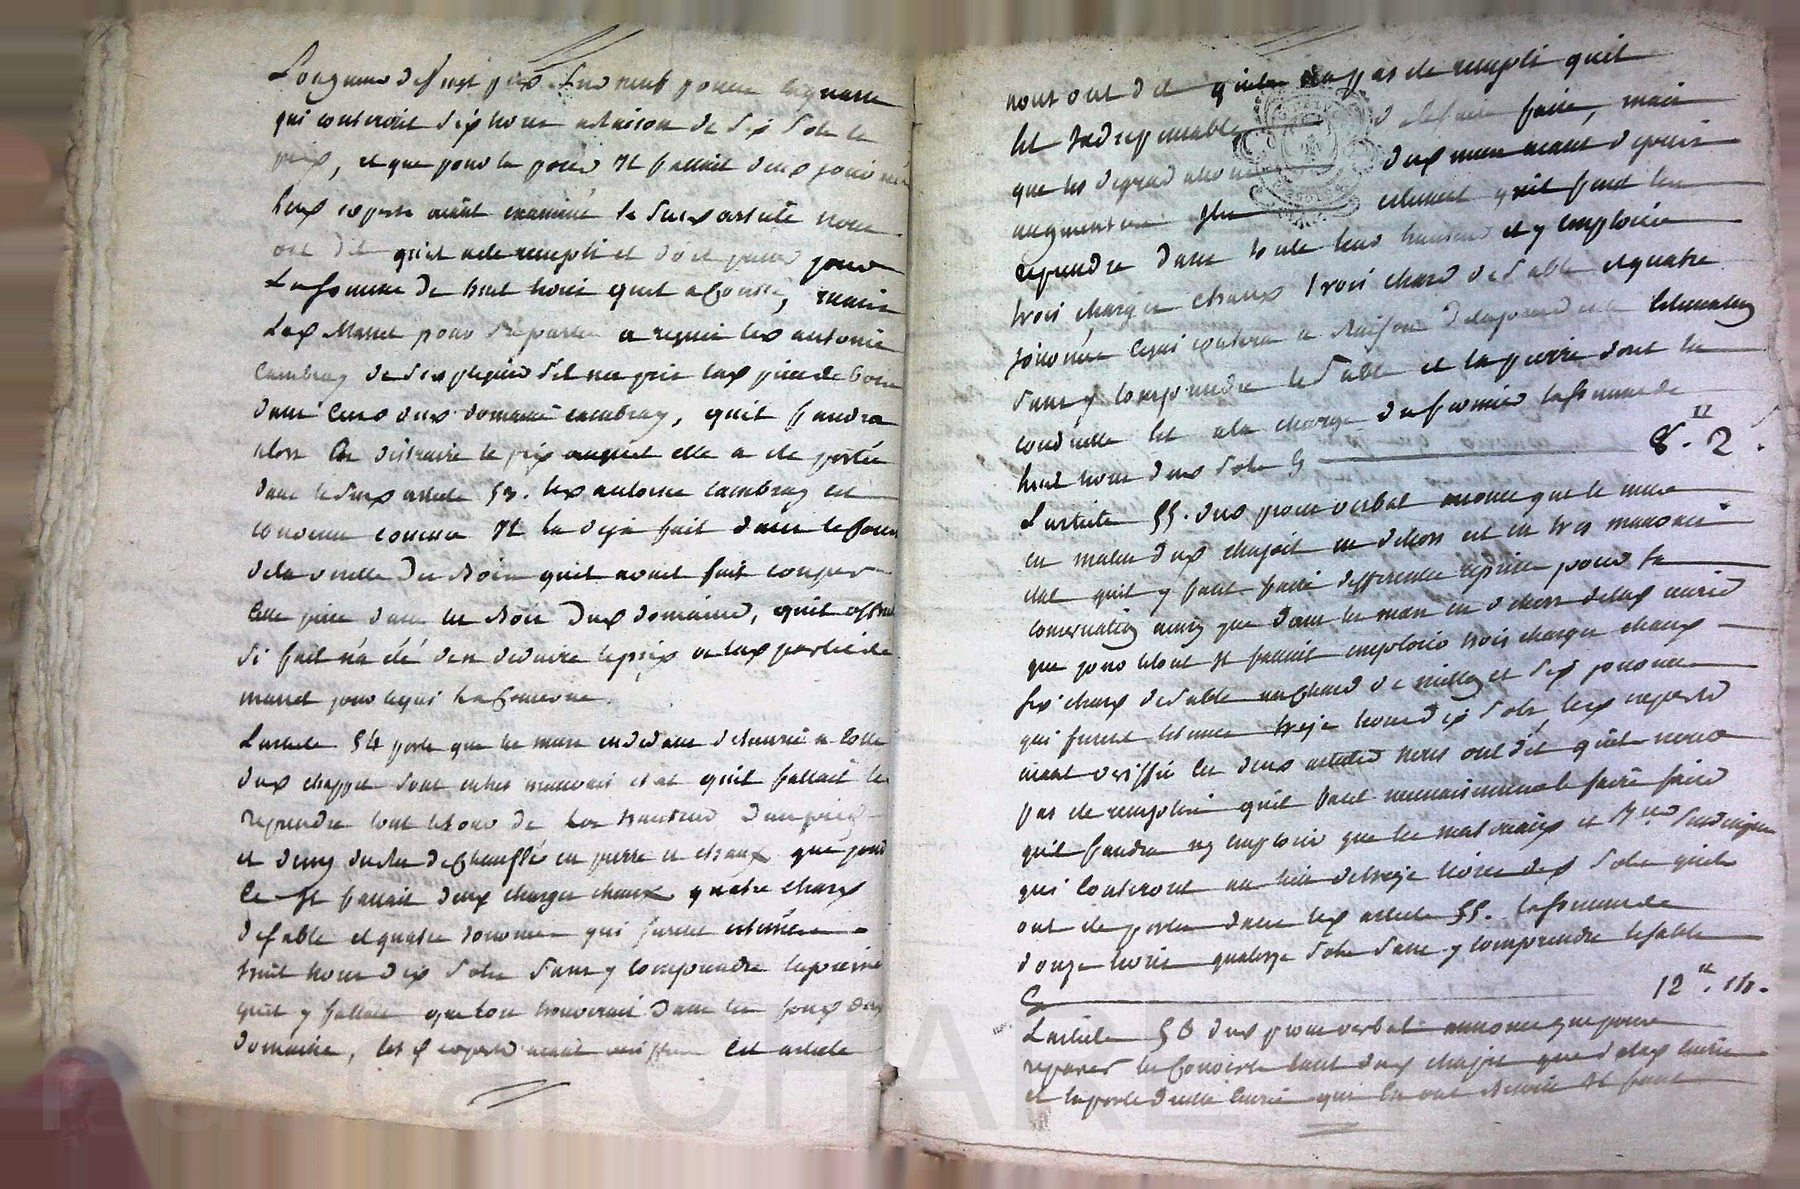 Longueur de huit pieds
qui couteroit dix livres a Raison de dix sols le
pied, et que pour la poser Il falloit deux journées
Lesdx experts aiant examiné le susdx article nous
ont dit qu'il a ete rempli et doit passer pour
La somme de huit livres qu'il a couté, mais
Ledx Marcel pour sa partie a requis ledx antoine
Cambray de s'expliquer s'il n'a pris ladx piece de bois
dans l'un desdx domaines cambray, qu'il faudra
alors En distraire le prix auquel elle a ete portée
dans le susdx article 53. ledx antoine cambray est
convenu comme Il la deja fait dans le cours
de la visite des Bois qu'il avoit fait couper
Cette piece dans les Bois dudx domaine, qu'il offre
si fait n'a été d'en deduire le prix a ladx partie de
marcel pour ce qui La Concerne.
L'article 54 porte que les murs en dedans de l'ecurie a coté
dudx chappit sont en tres mauvais etat qu'il falloit les
reprendre tout le tour de la hauteur d'un pied
et demy du Rez de chaussée en pierre et chaux que pour
Ce Il falloit deux charges chaux quatre chars
de sable et quatre journées qui furent estimées
huit livres dix sols sans y comprendre la pierre
qu'il y falloit que l'on trouveroit dans les fonds dudx
domaine, lesdx experts aiant verifié Cet article
nous ont dit qu'il n'a pas ete rempli qu'il
Est Indispensable de le faire faire, mais
que les degradations dudx mur aiant depuis
augmenté Ils estiment qu'il faut les
reprendre dans toute leur hauteur et y emploier
trois charges chaux trois chars de sable et quatre
journées ce qui coutera a Raison de la présente estimation
sans y comprendre le sable et la pierre dont la
conduite Est a la charge du fermier la somme de
huit livres deux sols Cy 8.tt 2.s
L'article 55. dudx procès verbal enonce que le mur
en matin dudx chapit en dehors est en tres mauvais
etat qu'il y faut faire differentes reprises pour sa
conservation ainsy que dans les murs en dehors de ladx ecurie
que pour le tout Il falloit emploier trois charges chaux
six chars de sable un char de moillon et dix journées
qui furent estimées treize livres dix sols, lesdx experts
aiant verifié les deux articles nous ont dit qu'ils n'ont
pas ete remplis qu'il faut necessairement le faire faire
qu'il faudra y emploier que les materiaux et journées sus designées
qui Couteront au lieu de treize livres dix sols qu'ils
ont ete portés dans ledx article 55. la somme de
douze livres quatorze sols sans y comprendre le sable
Cy 12.tt 14.s
L'article 56 dudx procès verbal annonce que pour
reparer les Couverts tant dudx chapit que de ladx ecurie
et la porte d'icelle Ecurie qui En ont besoin Il faut